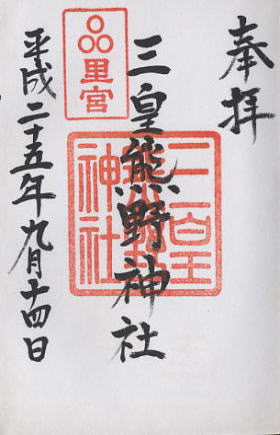 奉拝
三皇熊野神社
里宮
三皇
神社
平成二十五年九月十四日